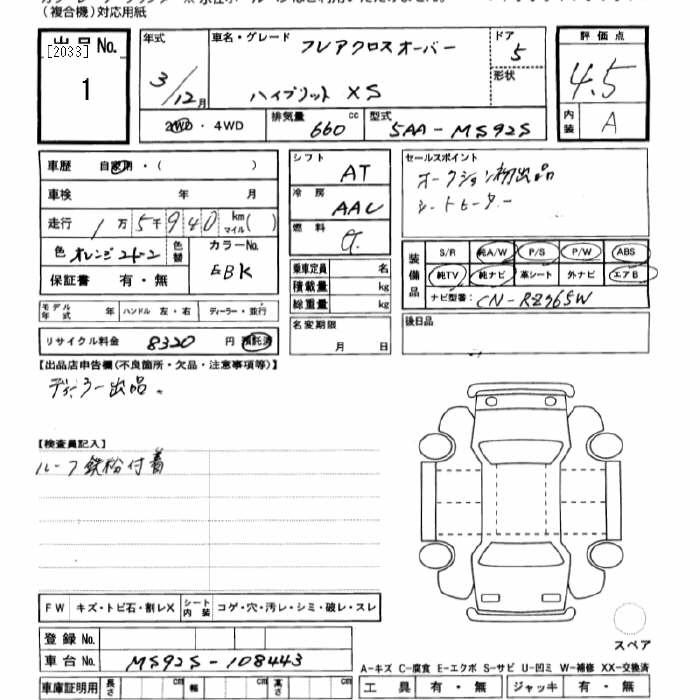 （複合機）対応用紙
出品No.
[2033]
1
年式
3/12月
車名・グレード
フレアクロスオーバー
ハイブリット XS
ドア
5
形状
評価点
4.5
内装
A
2WD・4WD
排気量
660
cc
型式
5AA-MS92S
車歴 自家用・（ ）
車検 年 月
走行 1万5千940 km マイル( )
色 オレンジ2トーン
色替
カラーNo.
EBK
保証書 有・無
シフト
AT
冷房
AAC
燃料
乗車定員 名
積載量 kg
総重量 kg
セールスポイント
オークション初出品
シートヒーター
装備品
S/R 純A/W P/S P/W ABS
純TV 純ナビ 革シート 外ナビ エアB
ナビ型番: CN-RZ765W
モデル年式 年 ハンドル 左・右 ディーラー・並行
リサイクル料金 8320 円 預託済
名変期限
月 日
後日品
【出品店申告欄(不良箇所・欠品・注意事項等)】
ディーラー出品。
【検査員記入】
ルーフ鉄粉付着
FW キズ・トビ石・割レX
シート内装 コゲ・穴・汚レ・シミ・破レ・スレ
登録No.
車台No. MS92S-108443
車庫証明用 長さ cm 幅 cm 高さ cm
スペア
A-キズ C-腐食 E-エクボ S-サビ U-凹ミ W-補修 XX-交換済
工具 有・無 ジャッキ 有・無